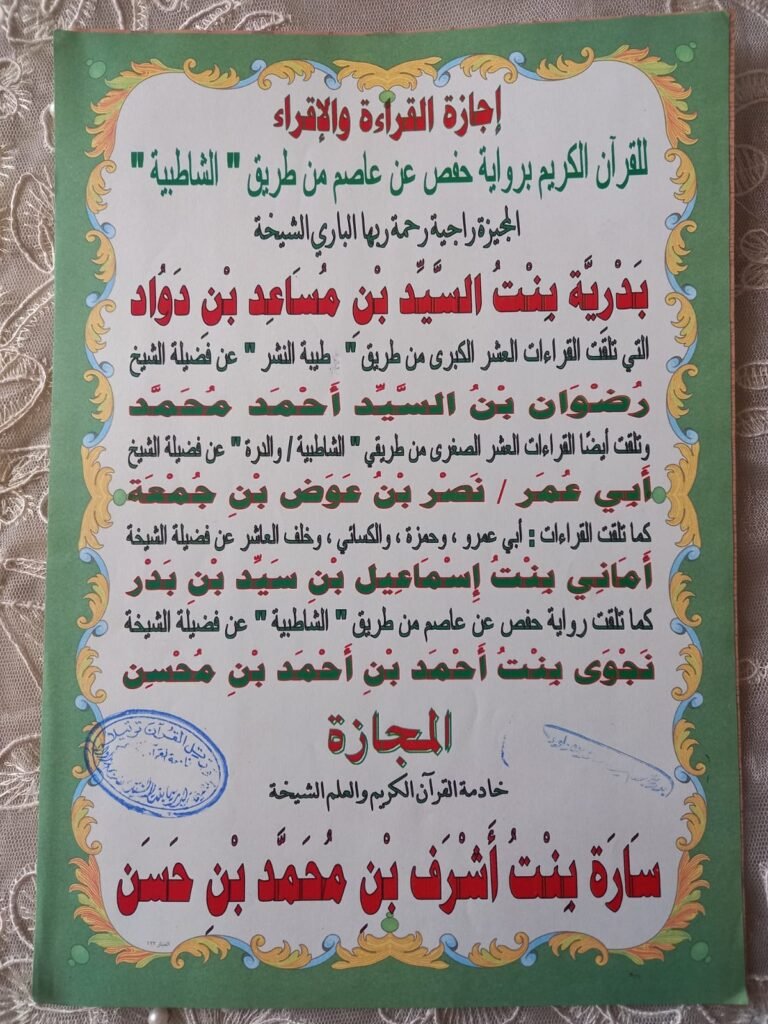 إجازة القراءة والإقراء
للقرآن الكريم برواية حفص عن عاصم من طريق " الشاطبية "
المجيزة راجية رحمة ربها الباري الشيخة
بَدْرِيَّة بِنْتُ السَّيِّد بْنِ مُسَاعِد بْنِ دَوُاد
التي تلقت القراءات العشر الكبرى من طريق " طيبة النشر " عن فضيلة الشيخ
رُضْوَان بْنُ السَّيِّد أَحْمَد مُحَمَّد
وتلقت أيضًا القراءات العشر الصغرى من طريقي " الشاطبية / والدرة " عن فضيلة الشيخ
أَبِي عُمَر / نَصْر بْنُ عَوَض بْنِ جُمْعَة
كما تلقت القراءات : أبي عمرو ، وحمزة ، والكسائي ، وخلف العاشر عن فضيلة الشيخة
أَمَانِي بِنْتُ إِسْمَاعِيل بْنِ سَيِّد بْنِ بَدْر
كما تلقت رواية حفص عن عاصم من طريق " الشاطبية " عن فضيلة الشيخة
نَجْوَى بِنْتُ أَحْمَد بْنِ أَحْمَد بْنِ مُحْسِن
المجازة
ورتل القرآن ترتيلا
خادمة القرآن الكريم والعلم الشيخة
سَارَة بِنْتُ أَشْرَف بْنِ مُحَمَّد بْنِ حَسَن